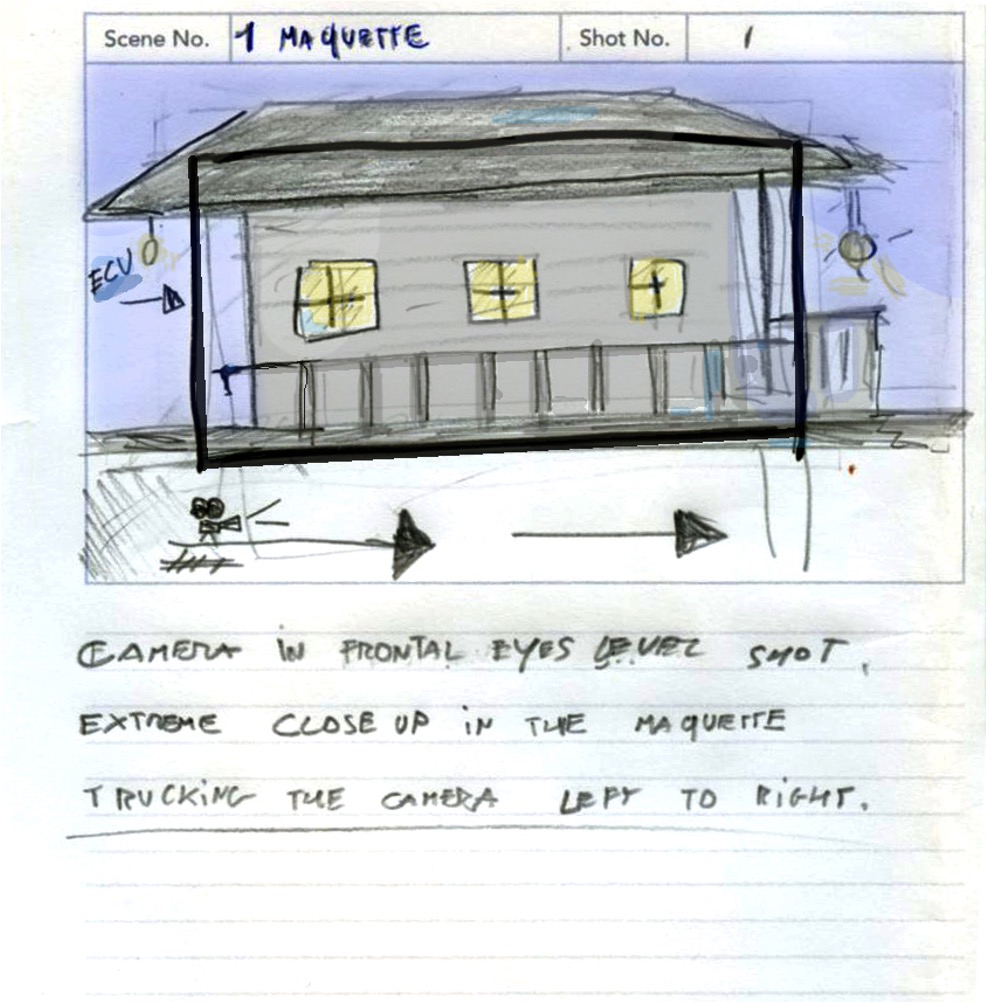 Scene No. 1 MAQUETTE Shot No. 1
ECU
CAMERA IN FRONTAL EYES LEVEL SHOT,
EXTREME CLOSE UP IN THE MAQUETTE
TRUCKING THE CAMERA LEFT TO RIGHT.